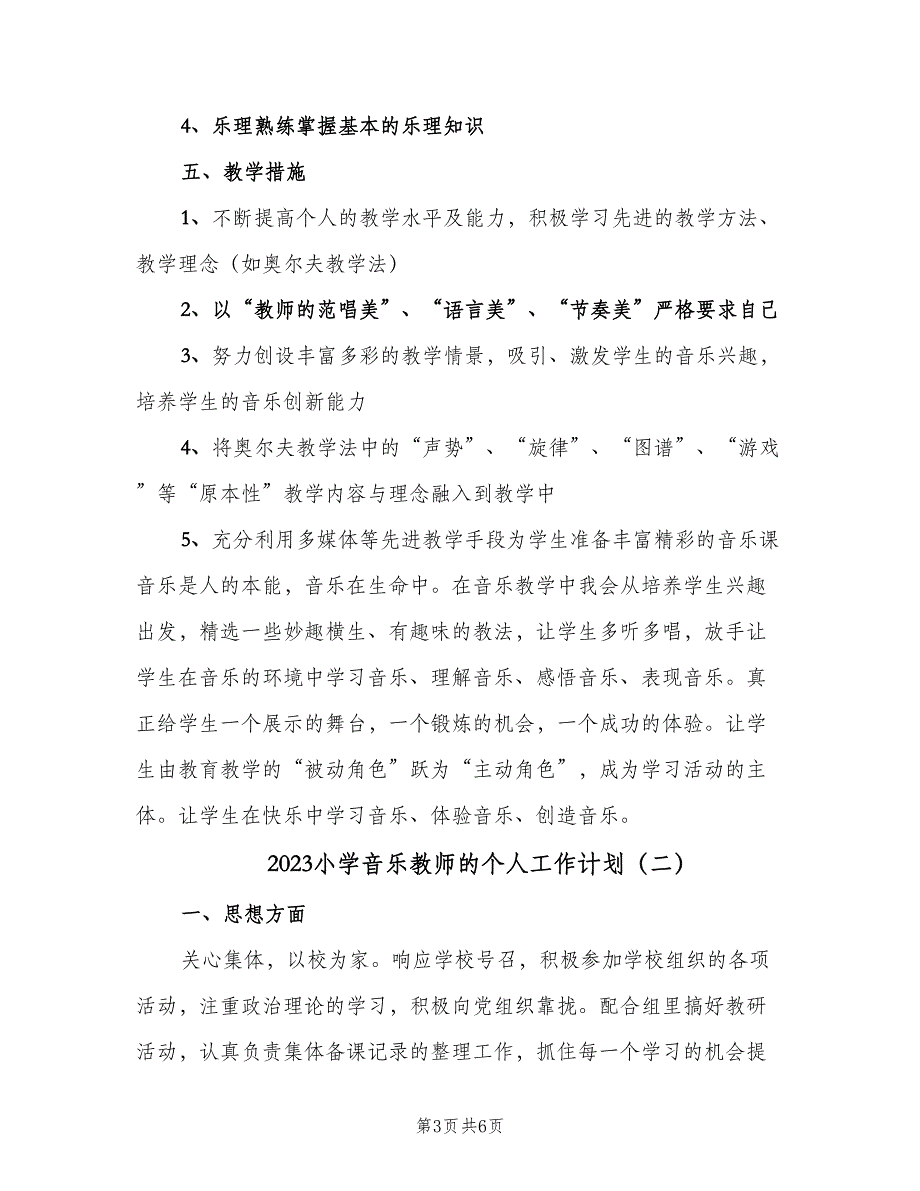 4、乐理熟练掌握基本的乐理知识
五、教学措施
1、不断提高个人的教学水平及能力，积极学习先进的教学方法、
教学理念（如奥尔夫教学法）
2、以“教师的范唱美”、“语言美”、“节奏美”严格要求自己
3、努力创设丰富多彩的教学情景，吸引、激发学生的音乐兴趣，
培养学生的音乐创新能力
4、将奥尔夫教学法中的“声势”、“旋律”、“图谱”、“游戏
”等“原本性”教学内容与理念融入到教学中
5、充分利用多媒体等先进教学手段为学生准备丰富精彩的音乐课
音乐是人的本能，音乐在生命中。在音乐教学中我会从培养学生兴趣
出发，精选一些妙趣横生、有趣味的教法，让学生多听多唱，放手让
学生在音乐的环境中学习音乐、理解音乐、感悟音乐、表现音乐。真
正给学生一个展示的舞台，一个锻炼的机会，一个成功的体验。让学
生由教育教学的“被动角色”跃为“主动角色”，成为学习活动的主
体。让学生在快乐中学习音乐、体验音乐、创造音乐。
2023小学音乐教师的个人工作计划（二）
一、思想方面
关心集体，以校为家。响应学校号召，积极参加学校组织的各项
活动，注重政治理论的学习，积极向党组织靠拢。配合组里搞好教研
活动，认真负责集体备课记录的整理工作，抓住每一个学习的机会提
第3页共6页